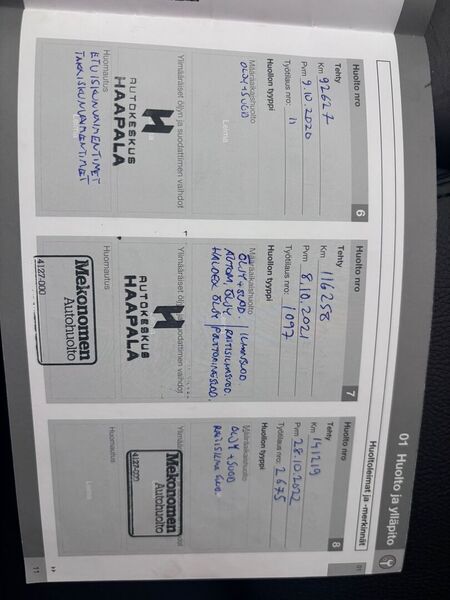 01 Huolto ja ylläpito
Huoltoleimat ja -merkinnät
Huolto nro
6
Tehty
Km 92627
Pvm 9.10.2020
Työtilaus nro: 11
Huollon tyyppi
Määräaikaishuolto
ÖLJY+SUOD
Leima
Ylimääräiset öljyn ja suodattimen vaihdot
H
AUTOKESKUS
HAAPALA
Huomautus
ETUISKUNVAIMENTIMET
TAKAISKUNVAIMENTIMET
Huolto nro
7
Tehty
Km 116258
Pvm 8.10.2021
Työtilaus nro: 1097
Huollon tyyppi
Määräaikaishuolto
ÖLJY+SUOD. / ILMANSUOD.
AUTOM. ÖLJY. RAITISILMASUOD.
HALDEX ÖLJY / POLTTOAINESUOD.
Ylimääräiset öljyn ja suodattimen vaihdot
H
AUTOKESKUS
HAAPALA
Huomautus
Mekonomen
Autohuolto
4127-000
Huolto nro
8
Tehty
Km 141219
Pvm 28.10.2022
Työtilaus nro: 2675
Huollon tyyppi
Määräaikaishuolto
ÖLJY + SUOD
RAITISILMA SUOD.
Mekonomen
Autohuolto
4127-000
Huomautus
Leima
01
11